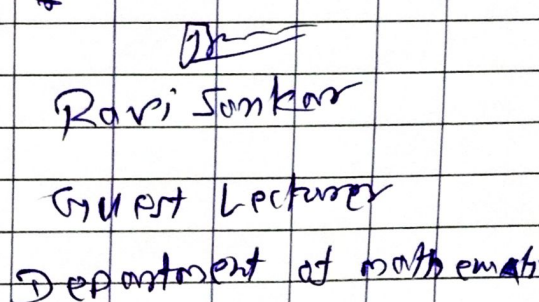 Ravi Sonkar
Guest Lecturer
Department of mathemat